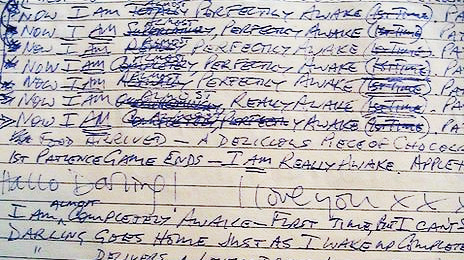 NOW I AM PERFECTLY AWAKE (1ST TIME) PA
NOW I AM ALMOST PERFECTLY AWAKE (1ST TIME) PAT
NOW I AM PERFECTLY AWAKE (1ST TIME) PAT
NOW I AM PERFECTLY AWAKE (1ST TIME) PA
NOW I AM PERFECTLY AWAKE (1ST TIME) PA
NOW I AM ALMOST REALLY AWAKE (1ST TIME) PAT
NOW I AM ALMOST PERFECTLY AWAKE (1ST TIME) PAT
FOOD ARRIVED - A DELICIOUS PIECE OF CHOCOL
1ST PATIENCE GAME ENDS - I AM REALLY AWAKE. APPLE +
Hallo Darling! I love you x x x
I AM ALMOST COMPLETELY AWAKE - FIRST TIME, BUT I CAN'T
DARLING GOES HOME JUST AS I WAKE UP COMPLETE
" DELIVERS A